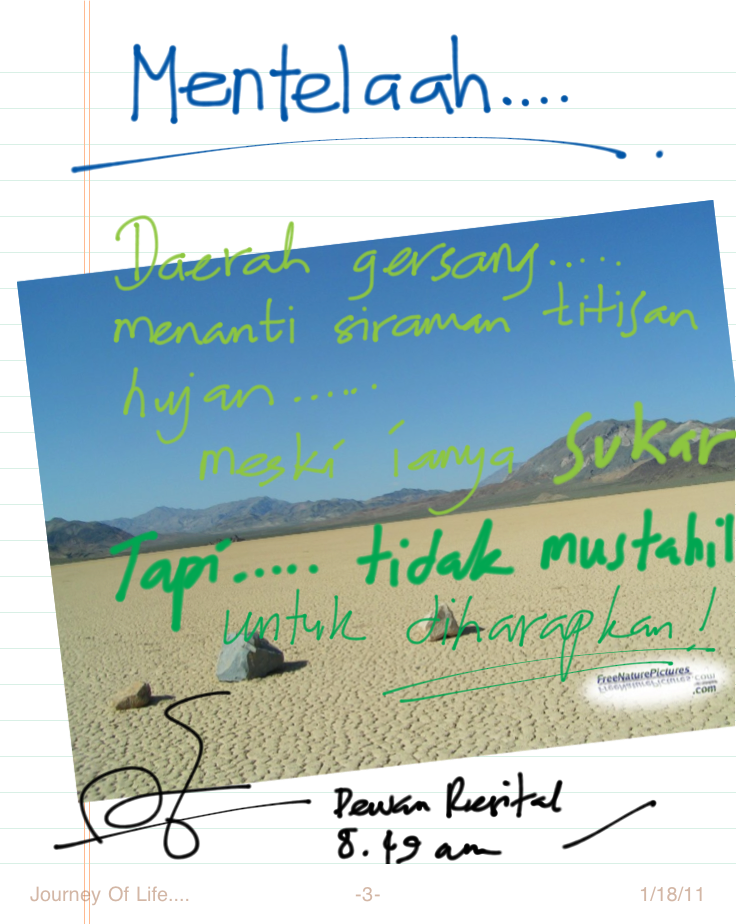 Mentelaah....
Daerah gersang.....
menanti siraman titisan
hujan......
meski ianya sukar
Tapi..... tidak mustahil
untuk diharapkan!
FreeNaturePictures
.com
Dewan Resital
8.49 am
Journey Of Life.... -3- 1/18/11